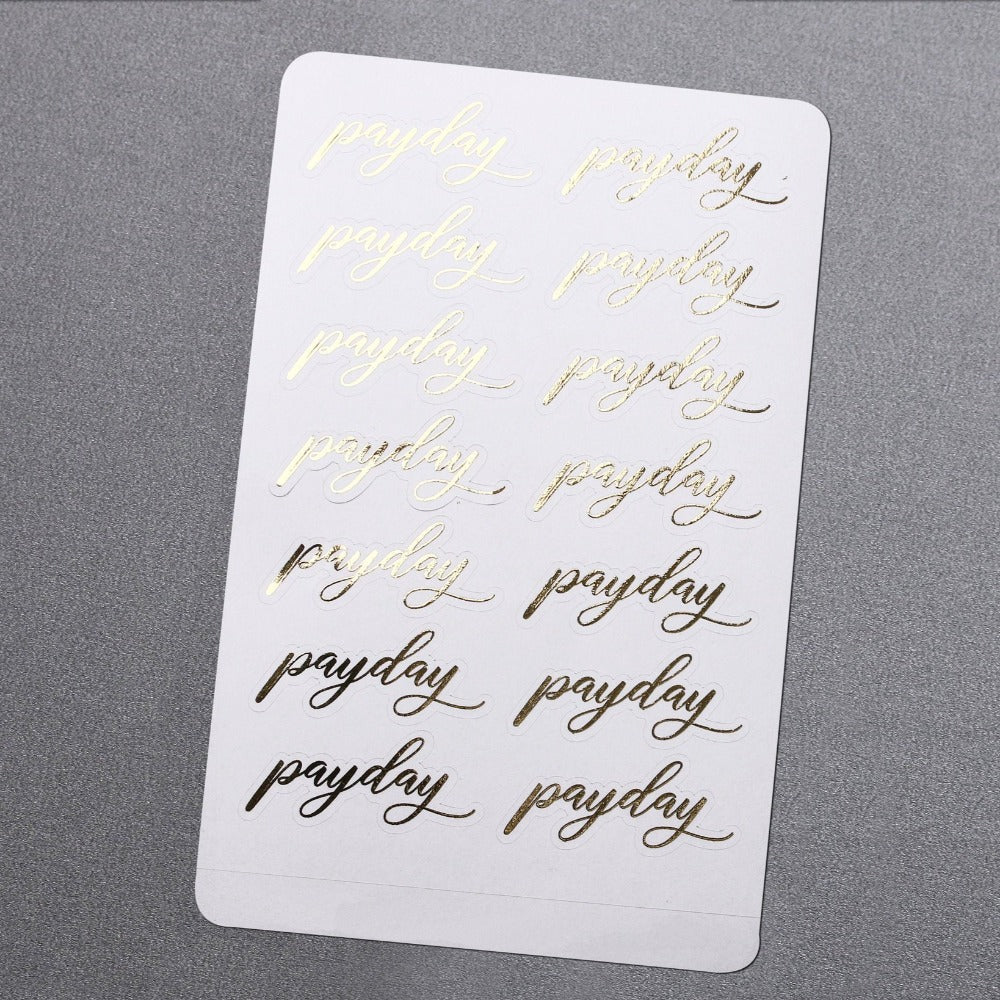 payday payday
payday payday
payday payday
payday payday
payday payday
payday payday
payday payday